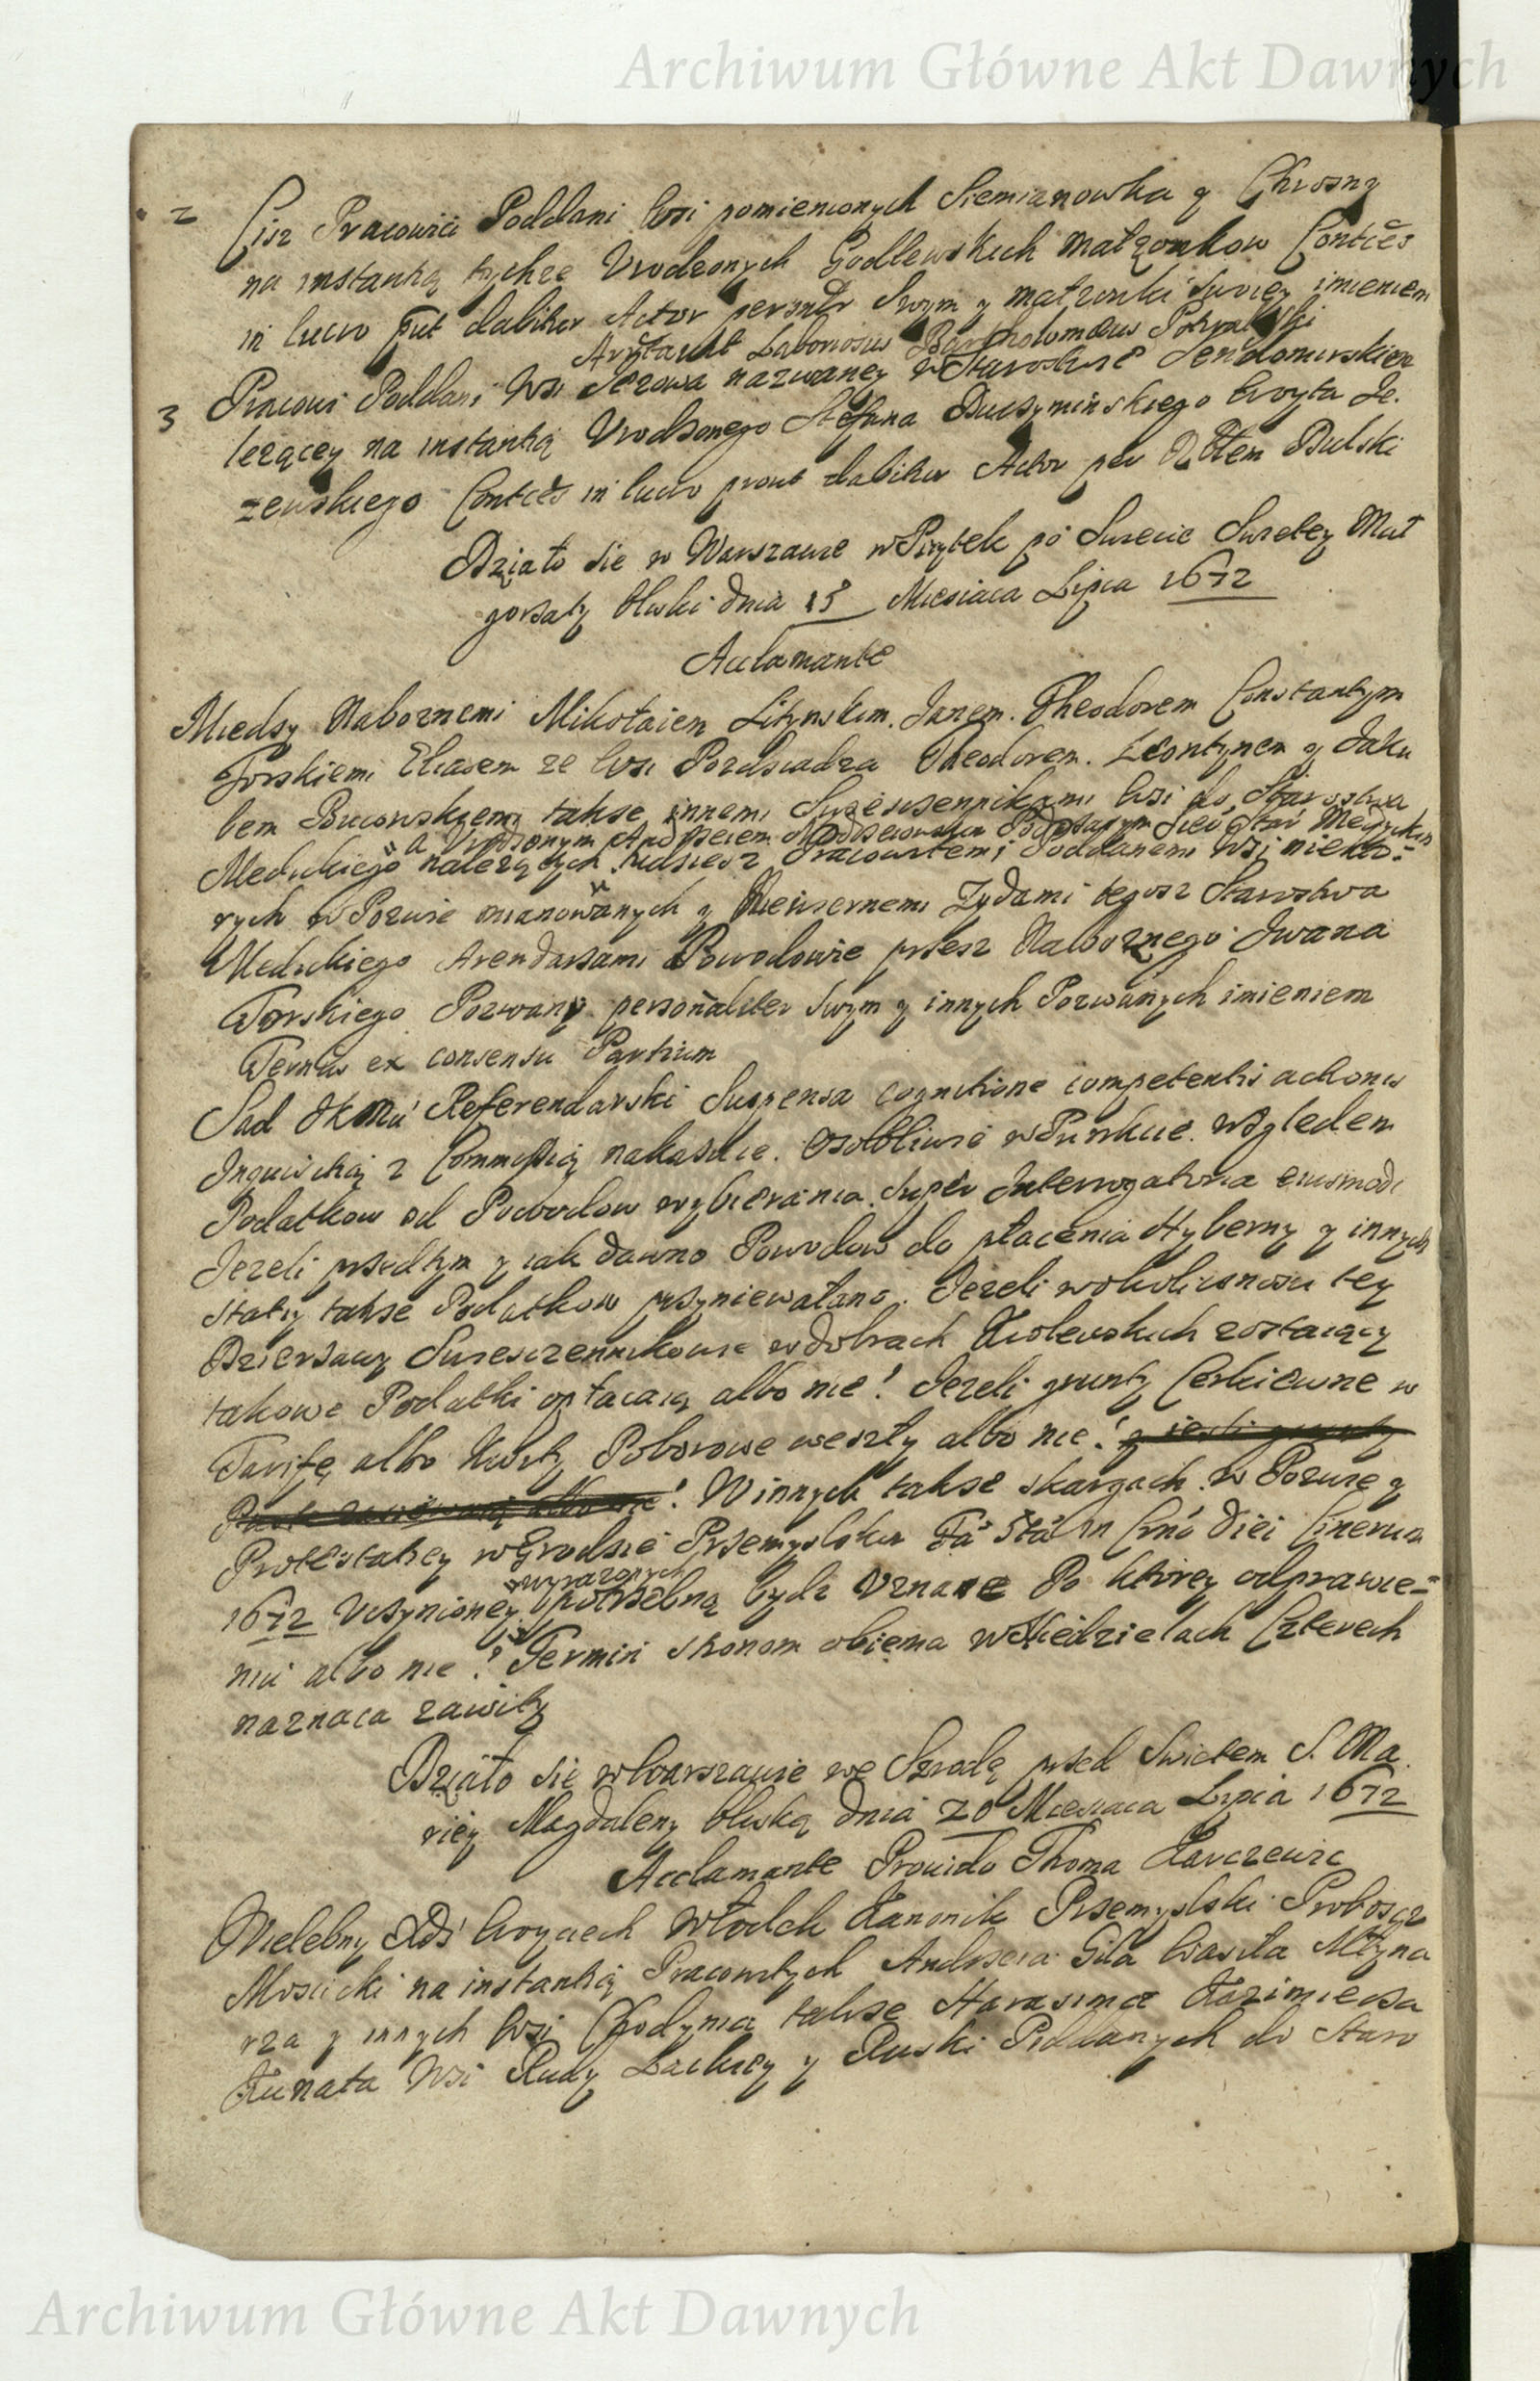 Archiwum Główne Akt Dawnych
2 Cisz Pracowici Poddani wsi pomienionych Siemianowka y Chrosną
na instantią tychże Vrodzonych Godlewskich małzonkow
in lucro put dabitur Actor Swym y małzonki Swoiey imieniem
Laboriosus Bartholomaeus
3 Pracowi Poddani Wsi Jezowa nazwaney w Starostwie Sendomirskiem
lezącey na instantią Vrodzonego Stefana Buczyminskiego Woyta Je-
zewskiego in lucro prout dabitur Actor per Bulski
Działo sie w Warszawie w Piątek po Swiecie Swietey Mał
gorzaty bliski dnia 15 Miesiaca Lipca 1672
Acclamante
Miedzy Naboznemi Mikołaiem Litynskim. Janem. Theodorem Constantym
Torskiemi Eliasem ze Wsi Pozdziadza Theodorem. Leontynem y Jaku
bem takze innemi Swiesczennikami Wsi do Starostwa
a Vrodzonym Andrzeiem
Medickiego należących tudziesz Pracowitemi Poddanemi Wsi niekto-
rych w Pozwie mianowanych y Niewiernemi Zydami tegosz Starostwa
Medickiego Arendarzami Powodowie przesz Naboznego Jwana
Torskiego Pozwany personaliter swym y innych Pozwanych imieniem
Terminus ex consensu Partium
Sad JKMci Referendarski Suspensa cognitione competentis actionis
Inquisitią z Commissią nakazuie. Osobliwie w Punkcie. Względem
Podatkow od Powodow wybierania. Super Interrogatoria eiusmodi
Jezeli przedtym y iak dawno Powodow do płacenia Hyberny y innych
Stacy takze Podatkow przyniewalano. Jezeli w okolicznosci tey
Dzierzawy Swiesczennikowie w dobrach Krolewskich zostaiący
takowe Podatki opłacaią albo nie! Jezeli grunty Cerkiewne w
Tariffę albo Kwity Poborowe weszły albo nie! y iesli grunty
albo nie! W innych takze skargach w Pozwie y
Protestatiey w Grodzie Przemyslskim Fa Sta in Crno diei Cinerum
1672 Uczynioney wyrazonych potrzebną bydz Vznane Po ktorey odprawie-
niu albo nie? Termin stronom obiema w Niedzielach Czterech
naznaca zawity
Działo sie w Warszawie we Szrodę przed Swietem S. Ma
riey Magdaleny bliską dnia 20 Miesiaca Lipca 1672
Acclamante Prouido Thoma Karczewic
Wielebny Xdz Woyciech Włodek Kanonik Przemyslski Proboszcz
Moscicki na instantią Pracowitych Andrzeia Gila Wasila Młyna
rza y innych Wsi Chodynia takze Harasima Kazimierza
Kunata Wsi Rudy Lackiey y Ruski Poddanych do Staro
Archiwum Główne Akt Dawnych